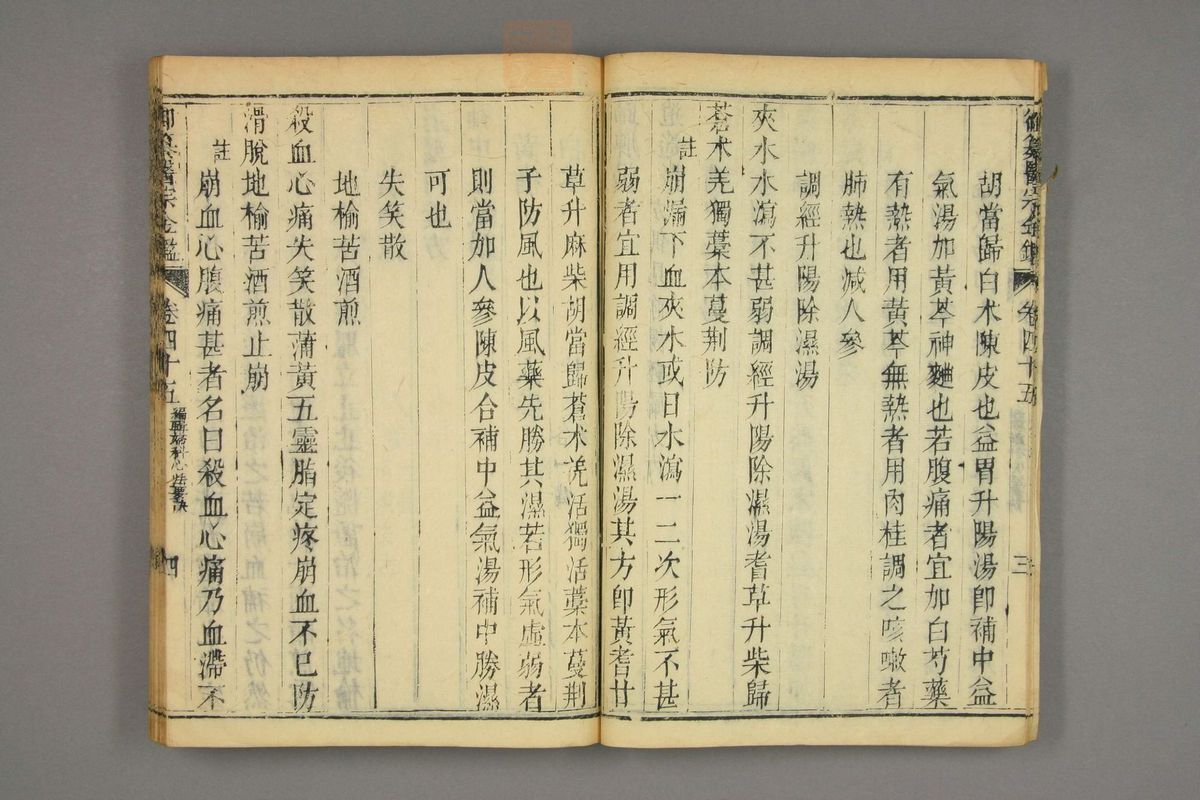 御纂醫宗金鑑 卷四十五 三
胡當歸白术陳皮也益胃升陽湯卽補中益
氣湯加黃芩神麯也若腹痛者宜加白芍藥
有熱者用黃芩無熱者用肉桂調之咳嗽者
肺熱也減人參
調經升陽除濕湯
夾水水瀉不甚弱調經升陽除濕湯耆草升柴歸
蒼术羌獨藁本蔓荆防
註崩漏下血夾水或日水瀉一二次形氣不甚
弱者宜用調經升陽除濕湯其方卽黃耆甘
草升麻柴胡當歸蒼术羌活獨活藁本蔓荆
子防風也以風藥先勝其濕若形氣虛弱者
則當加人參陳皮合補中益氣湯補中勝濕
可也
失笑散
地榆苦酒煎
殺血心痛失笑散蒲黃五靈脂定疼崩血不已防
滑脫地榆苦酒煎止崩
註崩血心腹痛甚者名曰殺血心痛乃血滯不
御纂醫宗金鑑 卷四十五 編輯婦科心法要訣 四